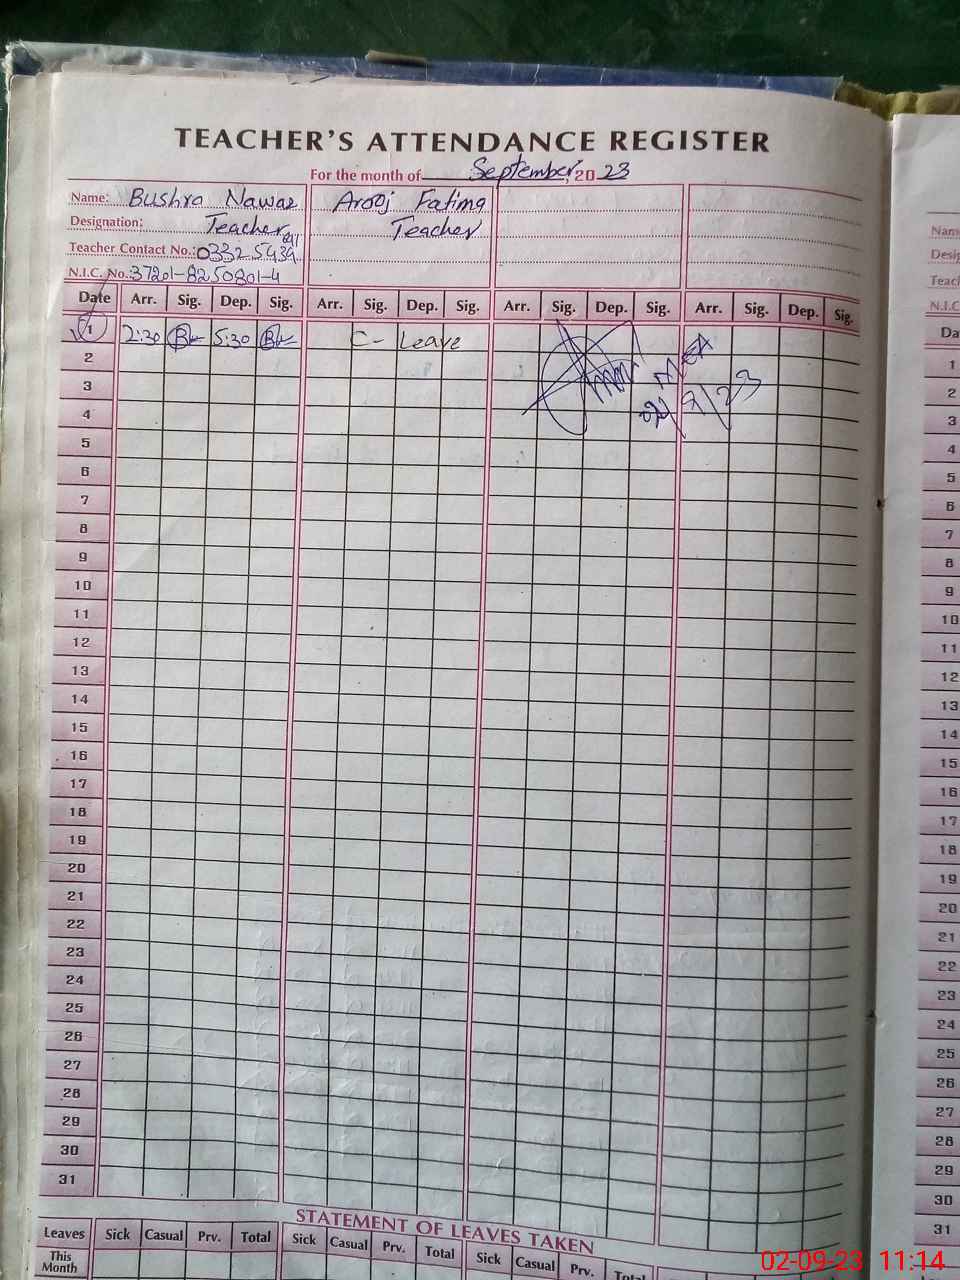 TEACHER'S ATTENDANCE REGISTER
For the month of September, 2023
Name: Bushra Nawaz Arooj Fatima
Designation: Teacher Teacher
Teacher Contact No.: 03325939
N.I.C. No.: 37201-8250801-4
Date Arr. Sig. Dep. Sig. Arr. Sig. Dep. Sig. Arr. Sig. Dep. Sig. Arr. Sig. Dep. Sig.
1 2:30 5:30 C- Leave
2
3
4
5
6
7
8
9
10
11
12
13
14
15
16
17
18
19
20
21
22
23
24
25
26
27
28
29
30
31
MEA
02/9/23
STATEMENT OF LEAVES TAKEN
Leaves Sick Casual Prv. Total Sick Casual Prv. Total Sick Casual Prv. Total
This
Month
Nam
Desig
Teach
N.I.C
Da
1
2
3
4
5
6
7
8
9
10
11
12
13
14
15
16
17
18
19
20
21
22
23
24
25
26
27
28
29
30
31
02-09-23 11:14